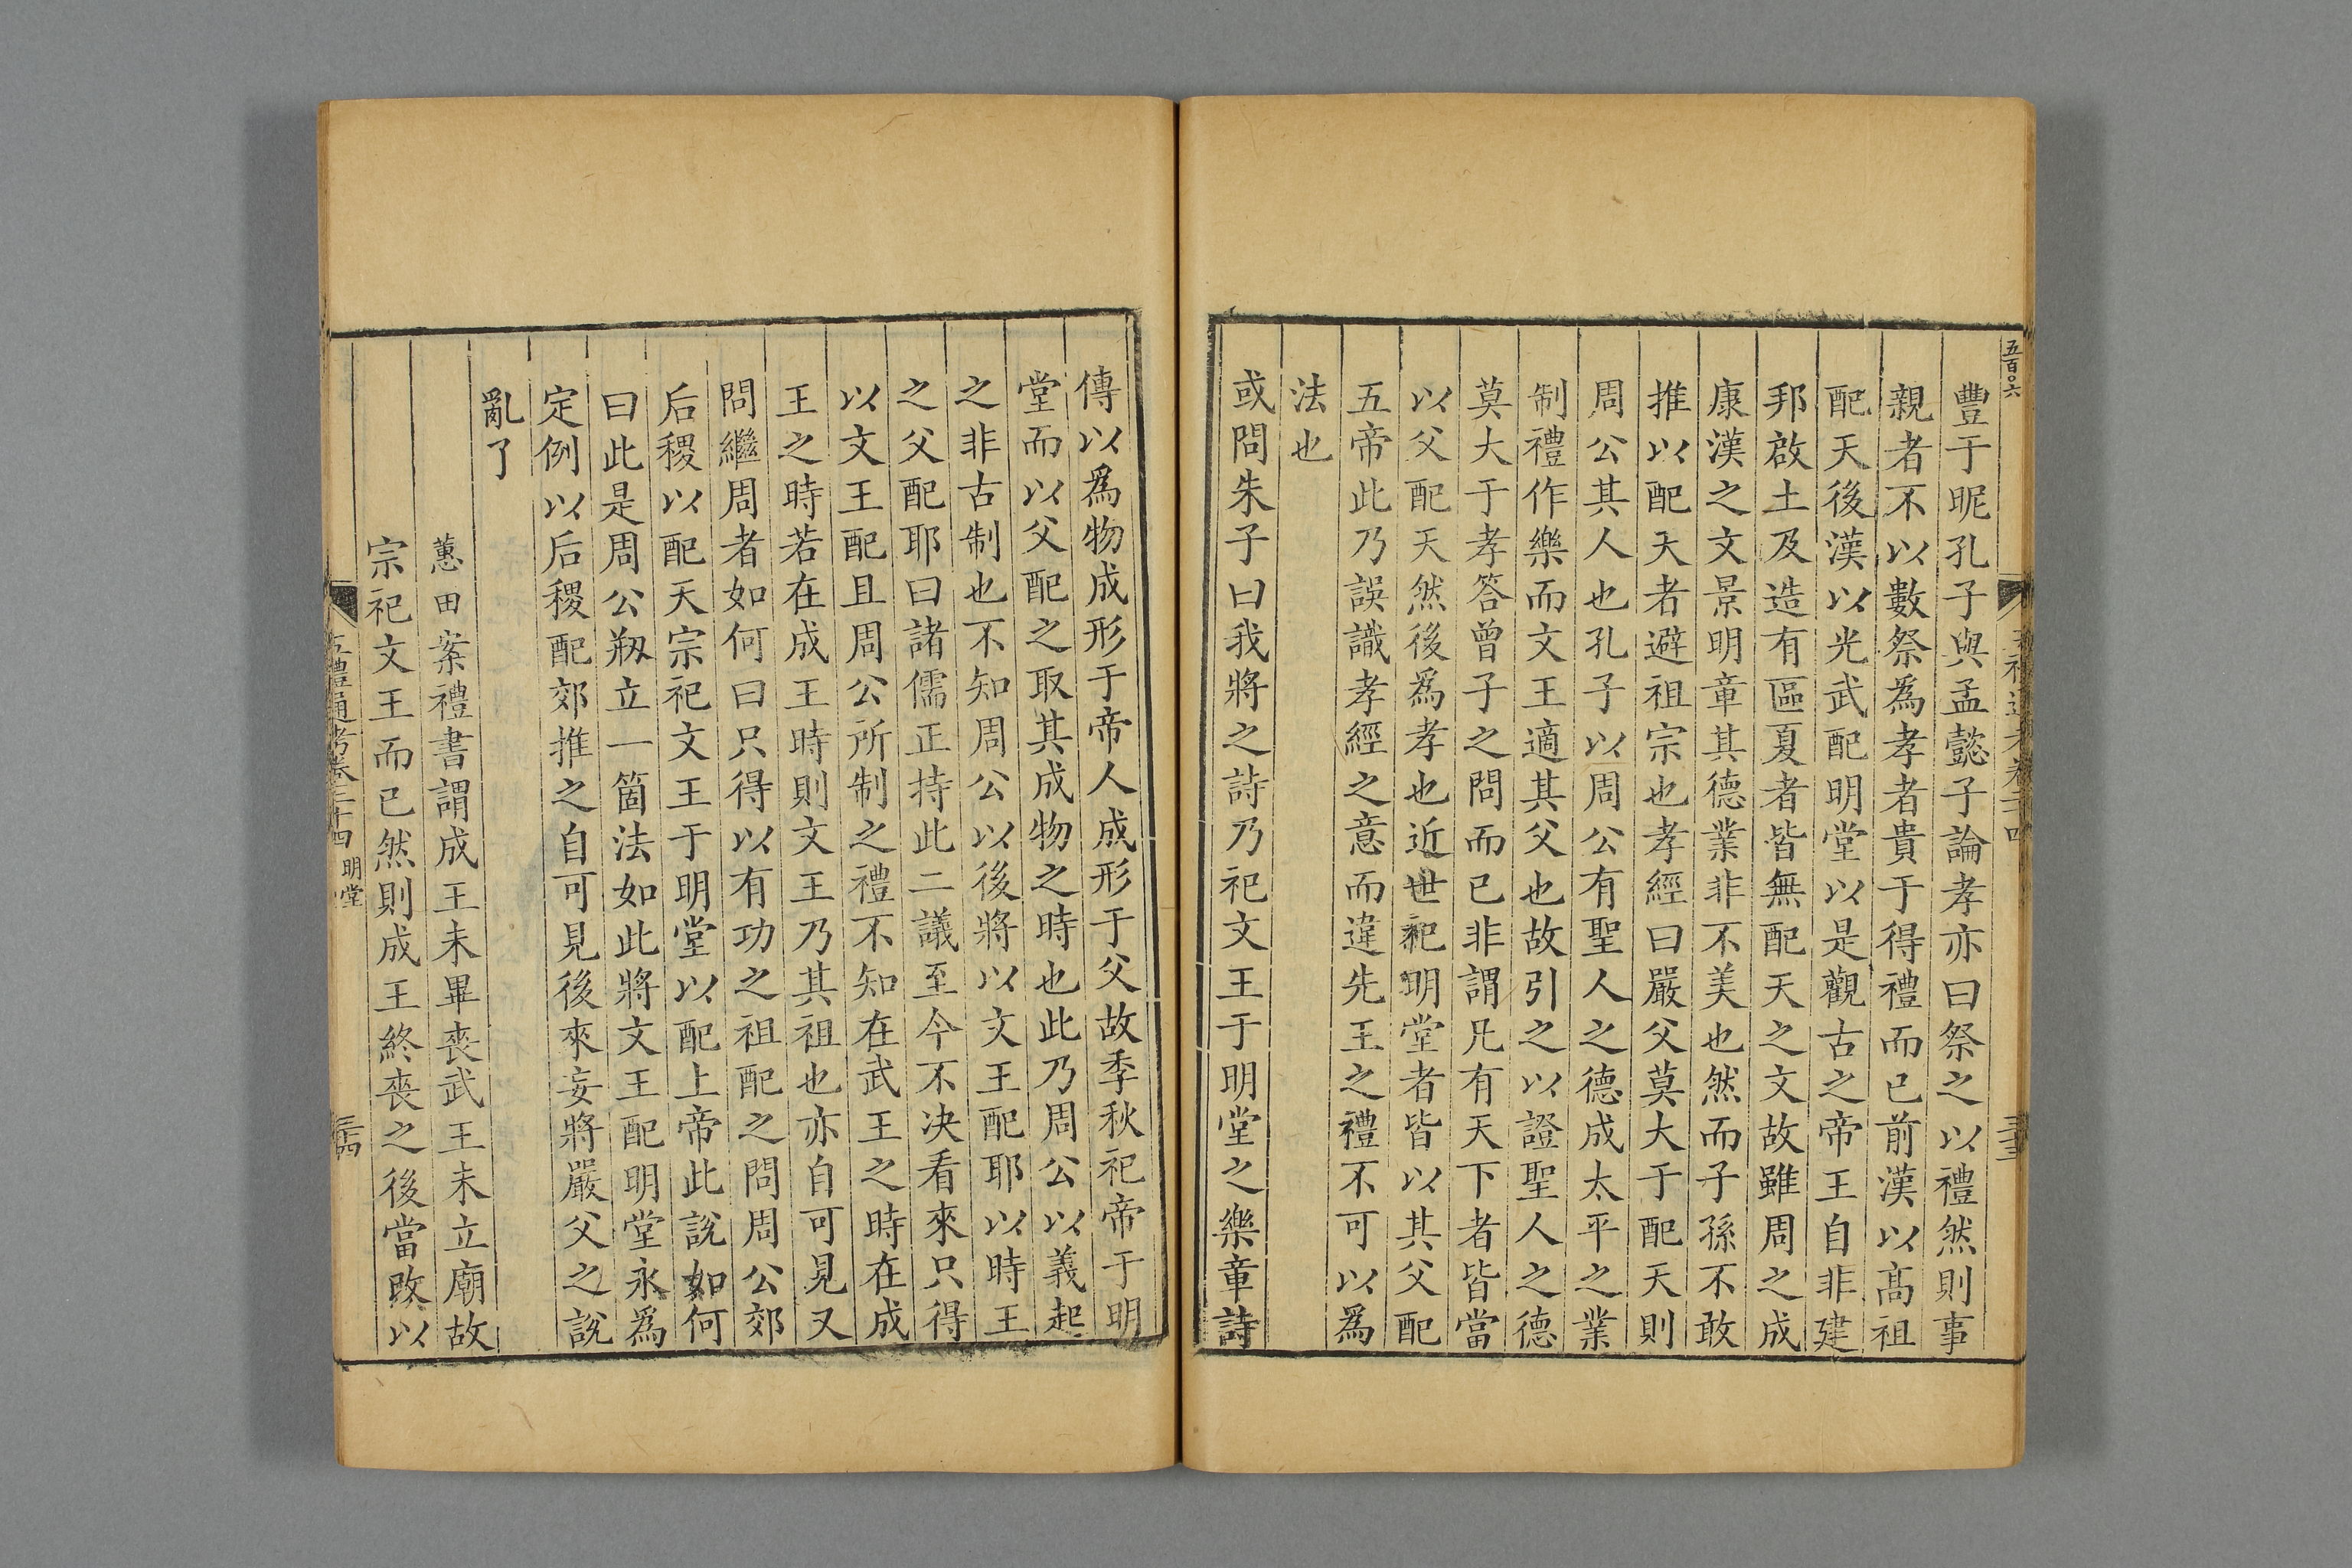 五百○六
豐于昵孔子與孟懿子論孝亦曰祭之以禮然則事
親者不以數祭爲孝者貴于得禮而已前漢以髙祖
配天後漢以光武配明堂以是觀古之帝王自非建
邦啟土及造有區夏者皆無配天之文故雖周之成
康漢之文景明章其德業非不美也然而子孫不敢
推以配天者避祖宗也孝經曰嚴父莫大于配天則
周公其人也孔子以周公有聖人之德成太平之業
制禮作樂而文王適其父也故引之以證聖人之德
莫大于孝答曾子之問而已非謂凡有天下者皆當
以父配天然後爲孝也近世祀明堂者皆以其父配
五帝此乃誤識孝經之意而違先王之禮不可以爲
法也
或問朱子曰我將之詩乃祀文王于明堂之樂章詩
傳以爲物成形于帝人成形于父故季秋祀帝于明
堂而以父配之取其成物之時也此乃周公以義起
之非古制也不知周公以後將以文王配耶以時王
之父配耶曰諸儒正持此二議至今不決看來只得
以文王配且周公所制之禮不知在武王之時在成
王之時若在成王時則文王乃其祖也亦自可見又
問繼周者如何曰只得以有功之祖配之問周公郊
后稷以配天宗祀文王于明堂以配上帝此說如何
曰此是周公剏立一箇法如此將文王配明堂永爲
定例以后稷配郊推之自可見後來妄將嚴父之說
亂了
蕙田案禮書謂成王未畢喪武王未立廟故
宗祀文王而已然則成王終喪之後當改以
五禮通考卷二十四 明堂 三四